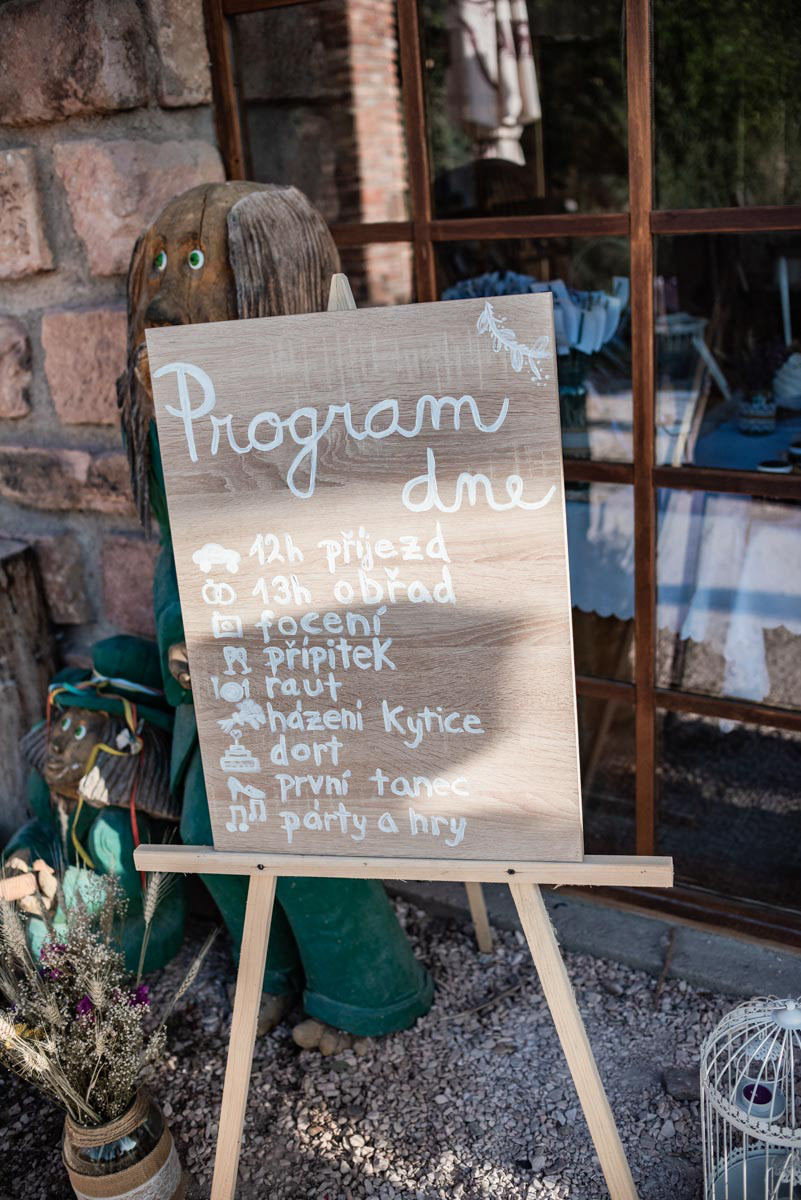 Program
dne
12h příjezd
13h obřad
focení
přípitek
raut
házení kytice
dort
první tanec
párty a hry